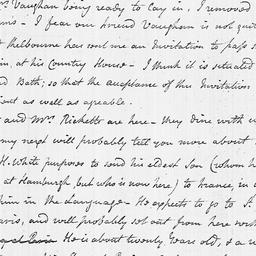 Mrs. Vaughan being ready to lay in, I removed
- I fear our friend Vaughan is not quite
Melbourne has sent me an Invitation to pass s
in, at his Country House - I think it is situated
Bath; so that the acceptance of this Invitation
out as well as agreable.
and Mrs. Ricketts are here - they dine with u
my next will probably tell you more about
H. White purposes to send his eldest Son (whom h
at Hamburgh but who is now here) to France, in o
him in the Language - He expects to go to St.
aris, and will probably set out from here next
He is about twenty Years old, & a ve